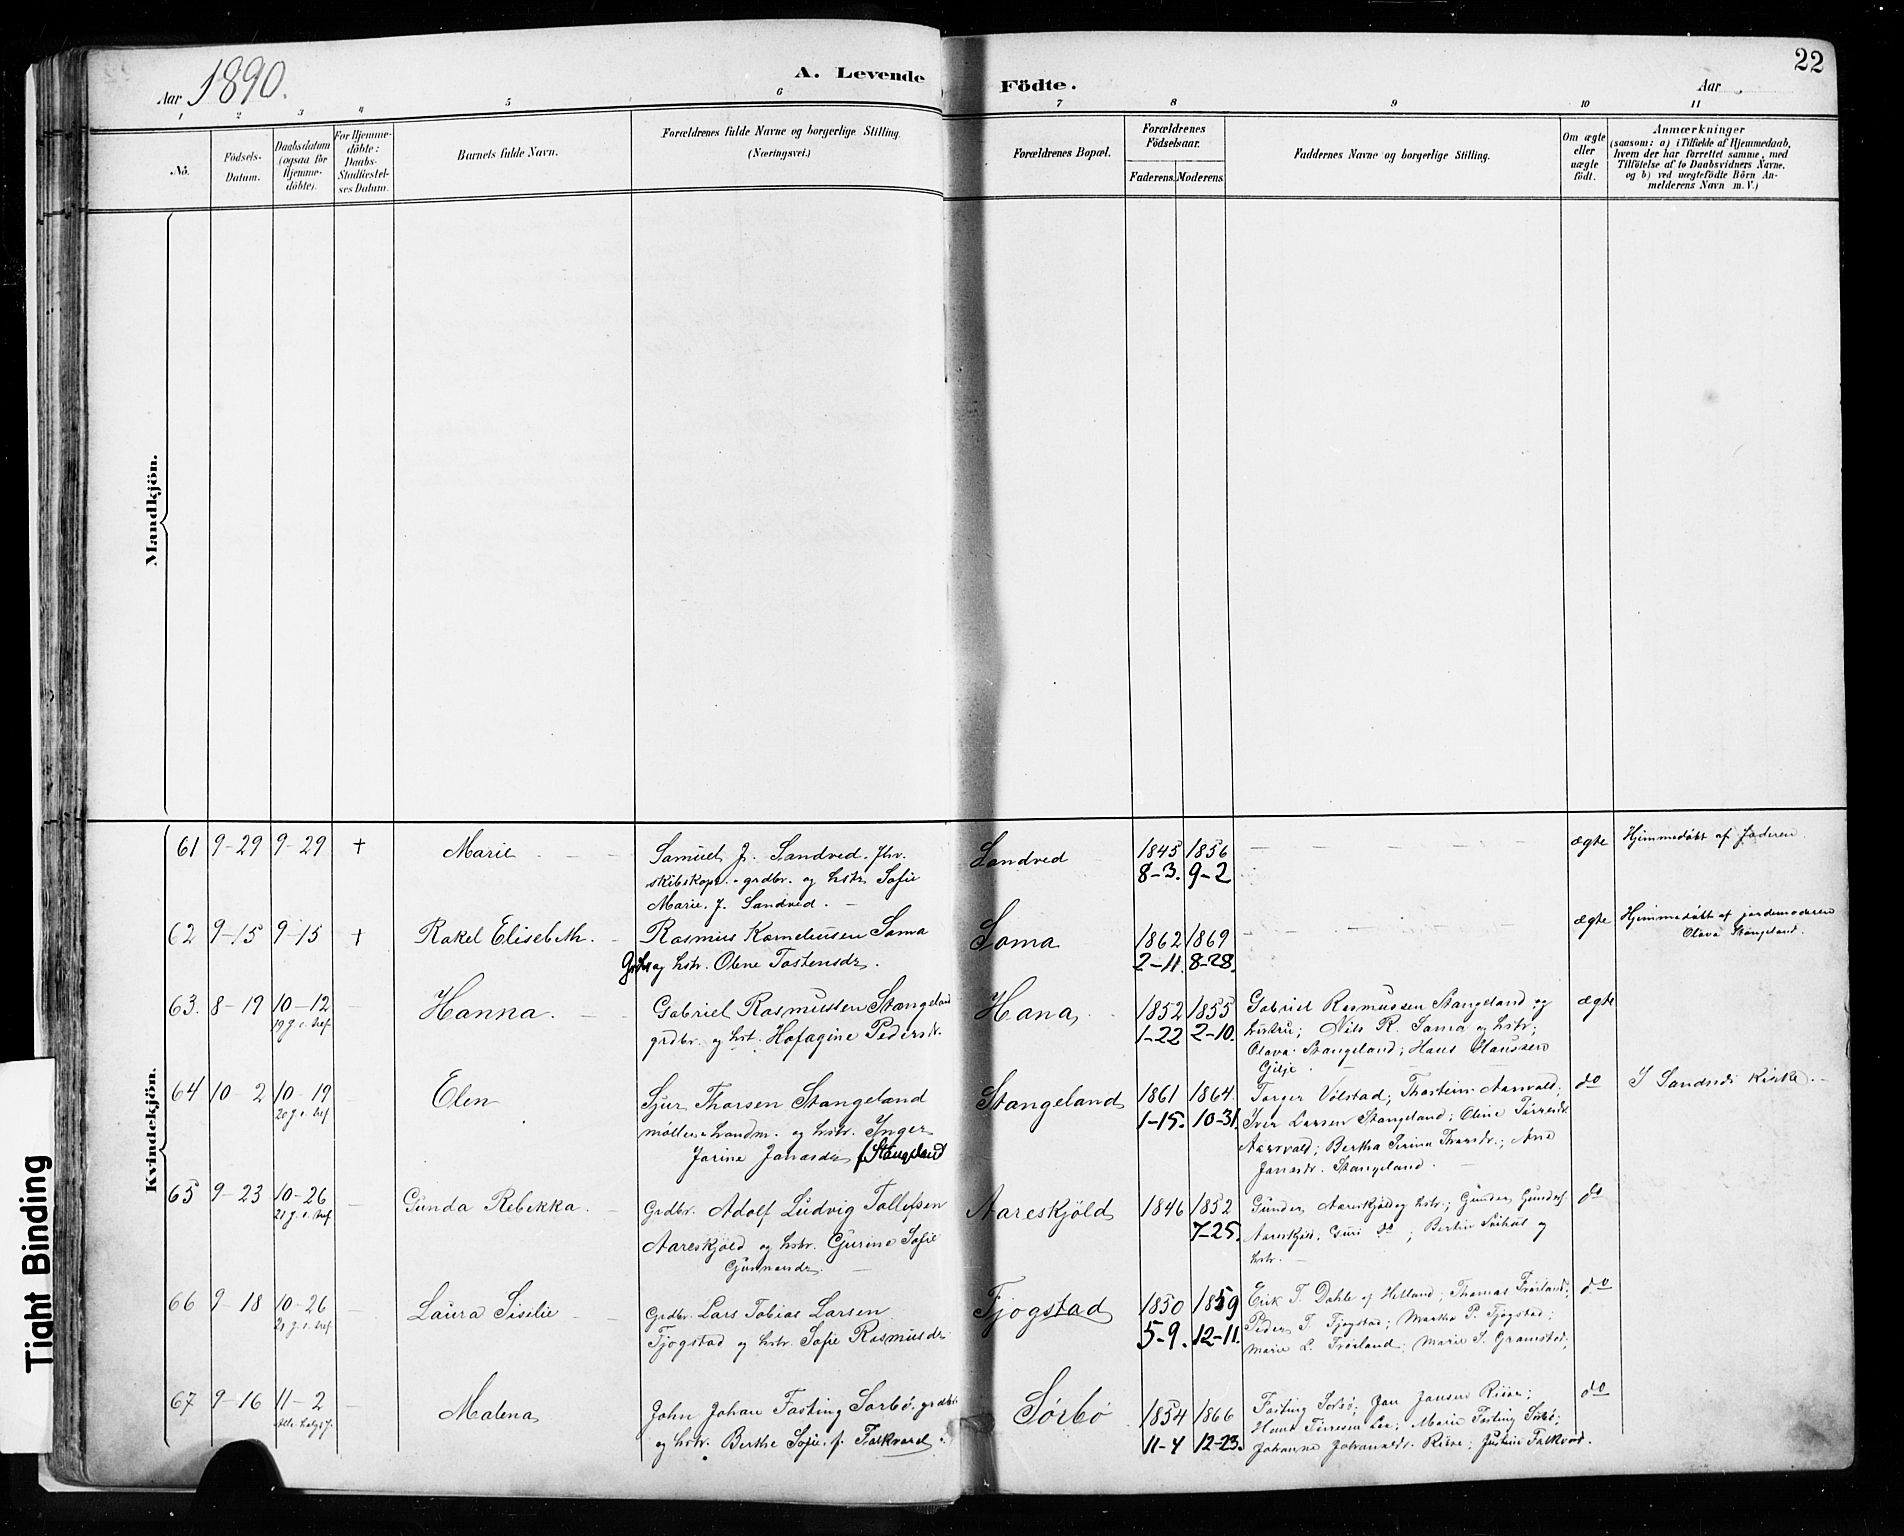 22
Aar 1890.
A. Levende Födte.
Aar
1 2 3 4 5 6 7 8 9 10 11
No.
Födsels-
Datum.
Daabsdatum
(ogsaa for
Hjemme-
döbte).
For Hjemme-
döbte:
Daabs-
Stadfæstel-
ses Datum.
Barnets fulde Navn.
Forældrenes fulde Navne og borgerlige Stilling.
(Næringsvei.)
Forældrenes Bopæl.
Forældrenes
Födselsaar.
Faderens. Moderens.
Faddernes Navne og borgerlige Stilling.
Om ægte
eller
uægte
födt.
Anmærkninger
(saasom: a) i Tilfælde af Hjemmedaab,
hvem der har forrettet samme, med
Tilföielse af to Daabsvidners Navne.
og b) ved uægtefödte Börn An-
melderens Navn m. V.)
Mandkjön.
Kvindekjön.
61 9-29 9-29 + Marie
Samuel J. Sandved,
skibskapt. - grdbr. og hstr. Sofie
Marie J. Sandved.
Sandved
1845 1856
8-3. 9-2
ægte
Hjemmedøbt af faderen.
62 9-15 9-15 + Rakel Elisebeth.
Rasmus Korneliussen Soma
og hstr. Olene Tostensdr.
Soma
1862 1869
2-11. 8-28.
ægte
Hjemmedøbt af jordemoderen
Olava Stangeland.
63. 8-19 10-12
Hanna.
Gabriel Rasmussen Stangeland
grdbr. og hst. Hofagine Pedersdr.
Hana
1852 1855
1-22 2-10.
Gabriel Rasmussen Stangeland og
hustru; Nils R. Soma og hstr;
Olava Stangeland; Hans Hanssen
Gilje.
ægte
64 10-2 10-19
Elen
Sjur Thorsen Stangeland
møller & handm. og hstr. Inger
Jorine Jonasdr. f. Stangeland
Stangeland
1861 1864.
1-15. 10-31.
Torger Vølstad; Thorstein Aarsvold;
Iver Larsen Stangeland; Oline
Aarsvold; Bertha Serina; Ane
Jonasdr. Stangeland.
do
I Sandnes Kirke.
65 9-23 10-26
Gunda Rebekka.
Grdbr. Adolf Ludvig Tollefsen
Aareskjold og hstr. Gurine Sofie
Gunnarsdr.
Aareskjöld
1846 1852
7-25.
Gunder Aareskjold og hstr; Gunder Gunders.
Aareskjold, Guri do; Bertin og
hstr.
do
66 9-18 10-26
Laura Sisilie
Grdbr. Lars Tobias Larsen
Fjogstad og hstr. Sofie Rasmusdr.
Fjogstad
1850 1859
5-9. 12-11.
Eirik T. Dahle af Helland; Thomas Frøiland;
Peder T. Fjogstad; Martha P. Fjogstad;
Marie L. Frøiland; Marie S. Gramstad;
do
67 9-16 11-2
Malena
John Johan Fasting Sorbø, grdbr.
og hstr. Berthe Sofie f. Falkvard.
Sørbø
1854 1866
11-4 12-23.
Fasting Sorbø; Jan Jansen Riise;
Hans Lea; Marie Fasting Sorbø;
Johanne Johannesd. Riise; Justine Falkvard.
do
Tight Binding